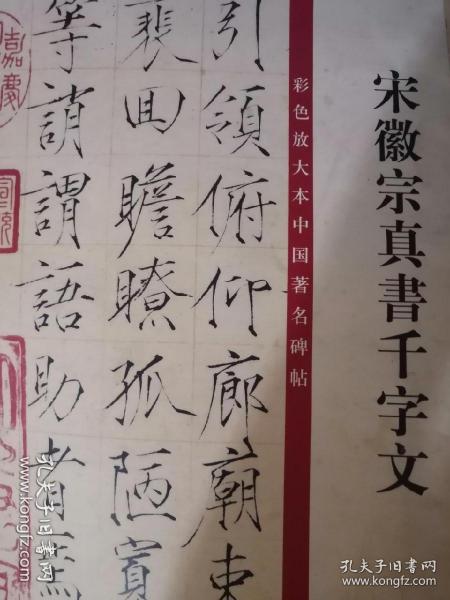 宋徽宗真書千字文
彩色放大本中国著名碑帖
引領俯仰廊廟束
裴回瞻瞭孤陋寡
等誚謂語助者焉
嘉慶
孔夫子旧书网
孔夫子旧书网
www.kongfz.com